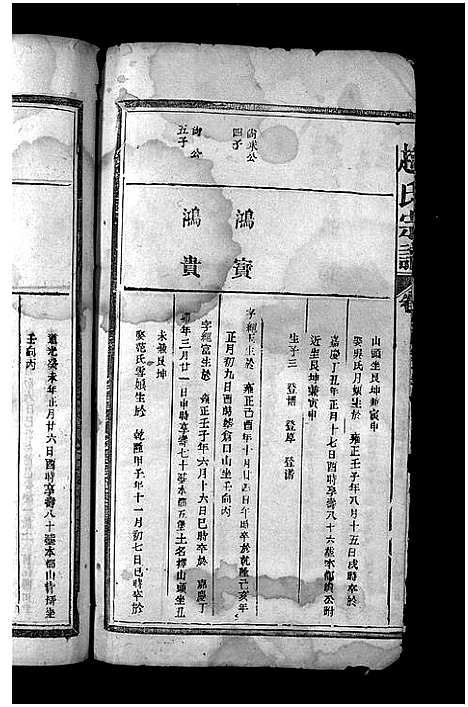 趙氏宗譜
山頭坐艮坤兼寅申
娶吳氏月娥生於 雍正壬子年八月十五日戌時卒於
嘉慶丁丑年正月十七日酉時享壽八十六葬本都公附
近坐艮坤兼寅申
生子三 登 登厚 登
尚公
四子
鴻寶
字經生於 雍正己酉年十月廿四日午時卒於乾隆己亥年
正月初九日酉時葬倉口山坐壬向丙
尚公
五子
鴻貴
字經富生於 雍正壬子年六月十六日巳時卒於 嘉慶丁
卯年三月廿一日申時享壽七十葬本都五堡土名山頭坐丑
未兼艮坤
娶范氏雪娥生於 乾隆甲子年十一月初七日巳時卒於
道光癸未年正月廿六日酉時享壽八十葬本都山背坐
壬向丙